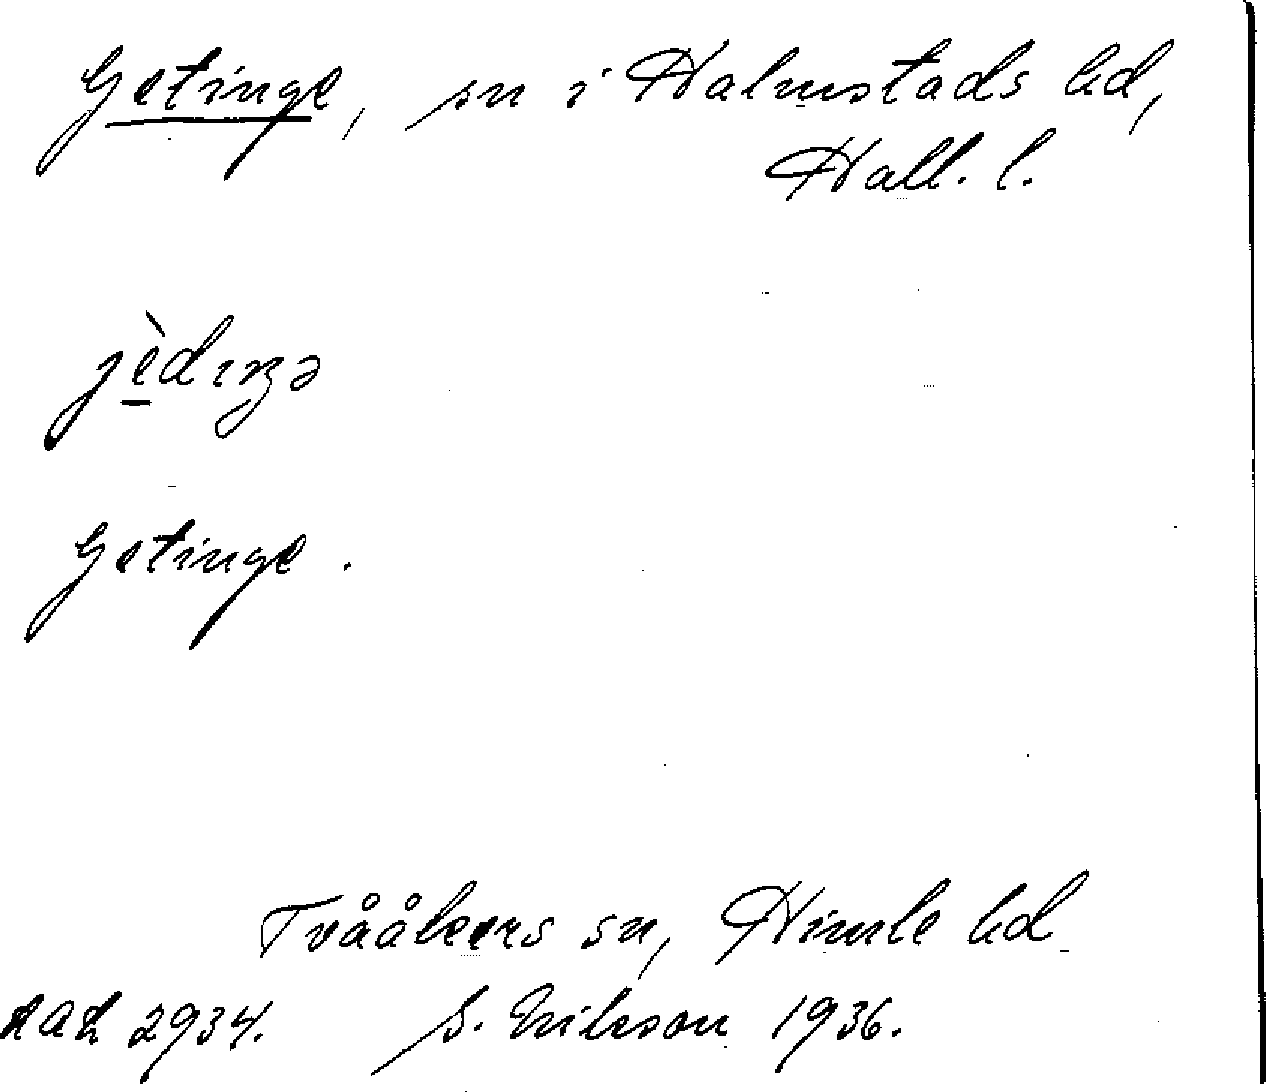 Getinge, sn i Halmstads hd,
Hall. l.
jèdıŋə
Getinge.
Tvååkers sn, Himle hd
2934. S. Erikson 1936.